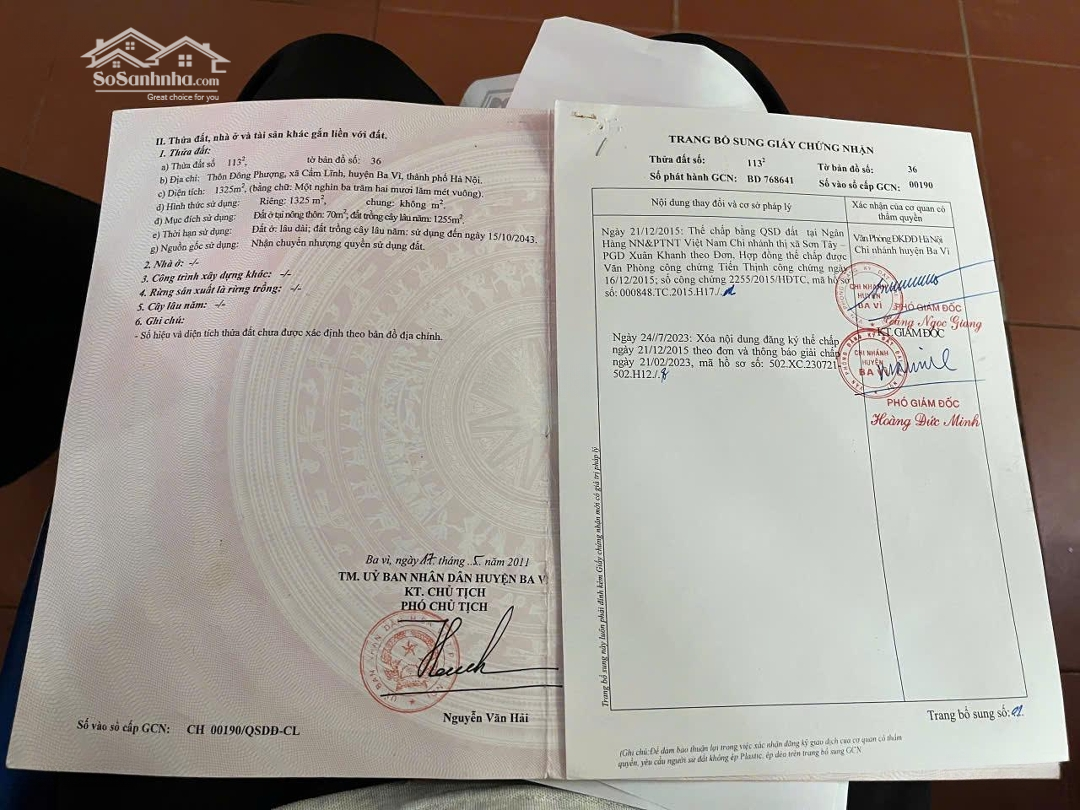 SoSanhnha.com
Great choice for you
II. Thửa đất, nhà ở và tài sản khác gắn liền với đất.
1. Thửa đất:
a) Thửa đất số 113², tờ bản đồ số: 36
b) Địa chỉ: Thôn Đông Phượng, xã Cẩm Lĩnh, huyện Ba Vì, thành phố Hà Nội.
c) Diện tích: 1325m², (bằng chữ: Một nghìn ba trăm hai mươi lăm mét vuông).
d) Hình thức sử dụng: Riêng: 1325 m², chung: không m².
đ) Mục đích sử dụng: Đất ở tại nông thôn: 70m²; đất trồng cây lâu năm: 1255m².
e) Thời hạn sử dụng: Đất ở: lâu dài; đất trồng cây lâu năm: sử dụng đến ngày 15/10/2043.
g) Nguồn gốc sử dụng: Nhận chuyển nhượng quyền sử dụng đất.
2. Nhà ở: -/-
3. Công trình xây dựng khác: -/-
4. Rừng sản xuất là rừng trồng: -/-
5. Cây lâu năm: -/-
6. Ghi chú:
- Số hiệu và diện tích thửa đất chưa được xác định theo bản đồ địa chính.
Ba vì, ngày 17 tháng 5 năm 2011
TM. UỶ BAN NHÂN DÂN HUYỆN BA V
KT. CHỦ TỊCH
PHÓ CHỦ TỊCH
Nguyễn Văn Hải
Số vào sổ cấp GCN: CH 00190/QSDĐ-CL
TRANG BỔ SUNG GIẤY CHỨNG NHẬN
Thửa đất số: 113² Tờ bản đồ số: 36
Số phát hành GCN: BD 768641 Số vào sổ cấp GCN: 00190
Nội dung thay đổi và cơ sở pháp lý
Xác nhận của cơ quan có
thẩm quyền
Ngày 21/12/2015: Thế chấp bằng QSD đất tại Ngân
Hàng NN&PTNT Việt Nam Chi nhánh thị xã Sơn Tây –
PGD Xuân Khanh theo Đơn, Hợp đồng thế chấp được
Văn Phòng công chứng Tiến Thịnh công chứng ngày
16/12/2015; số công chứng 2255/2015/HĐTC, mã hồ sơ
số: 000848.TC.2015.H17./.
Văn Phòng ĐKĐĐ Hà Nội
Chi nhánh huyện Ba Vì
CHI NHÁNH
HUYỆN
BA VÌ
PHÓ GIÁM ĐỐC
Ngọc Giang
Ngày 24//7/2023: Xóa nội dung đăng ký thế chấp
ngày 21/12/2015 theo đơn và thông báo giải chấp
ngày 21/02/2023, mã hồ sơ số: 502.XC.230721-
502.H12./.
KT.GIÁM ĐỐC
CHI NHÁNH
HUYỆN
BA VÌ
PHÓ GIÁM ĐỐC
Hoàng Đức Minh
Trang bổ sung này luôn phải đính kèm Giấy chứng nhận mới có giá trị pháp lý
Trang bổ sung số: 01.
(Ghi chú: Để đảm bảo thuận lợi trong việc xác nhận đăng ký giao dịch của cơ quan có thẩm
quyền, yêu cầu người sử đất không ép Plastic, ép dẻo trên trang bổ sung GCN